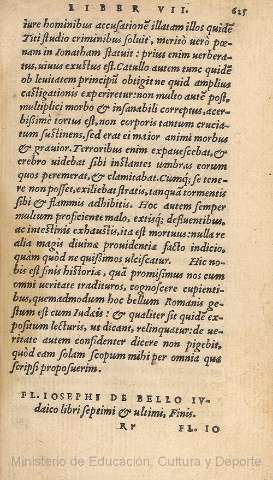 LIBER VII. 625
iure hominibus accusationẽ illatam illos quidẽ
Titi studio criminibus soluit, meritò verò pœ-
nam in Ionatham statuit: prius enim uerbera-
tus, uiuus exustus est. Catullo autem tunc quidẽ
ob leuitatem principũ obtigit ne quid amplius
castigationis experiretur: non multo autẽ post,
multiplici morbo & insanabili correptus, acer-
bissimè tortus est, non corporis tantum crucia-
tum sustinens, sed erat ei maior animi morbus
& grauior. Terroribus enim expauescebat, &
crebro uidebat sibi instantes umbras eorum
quos peremerat, & clamitabat. Cumq; se tene-
re non posset, exiliebat stratis, tanquã tormentis
sibi & flammis adhibitis. Hoc autem semper
multum proficiente malo, extisq; defluentibus,
ac intestinis exhaustis, ita est mortuus: nulla re
alia magis diuinæ prouidentiæ facto indicio,
quàm quòd nequissimos ulciscatur. Hic no-
bis est finis historiæ, quã promisimus nos cum
omni ueritate tradituros, cognoscere cupienti-
bus, quemadmodum hoc bellum Romanis ge-
stum est cum Iudæis: & qualiter sit quidẽ ex-
positum lecturis, ut dicant, relinquatur: de ue-
ritate autem considenter dicere non pigebit,
quòd eam solam scopum mihi per omnia quæ
scripsi proposuerim.
FL. IOSEPHI DE BELLO IV-
daico libri septimi & ultimi, Finis.
Rr FL. IO
Ministerio de Educación, Cultura y Deporte